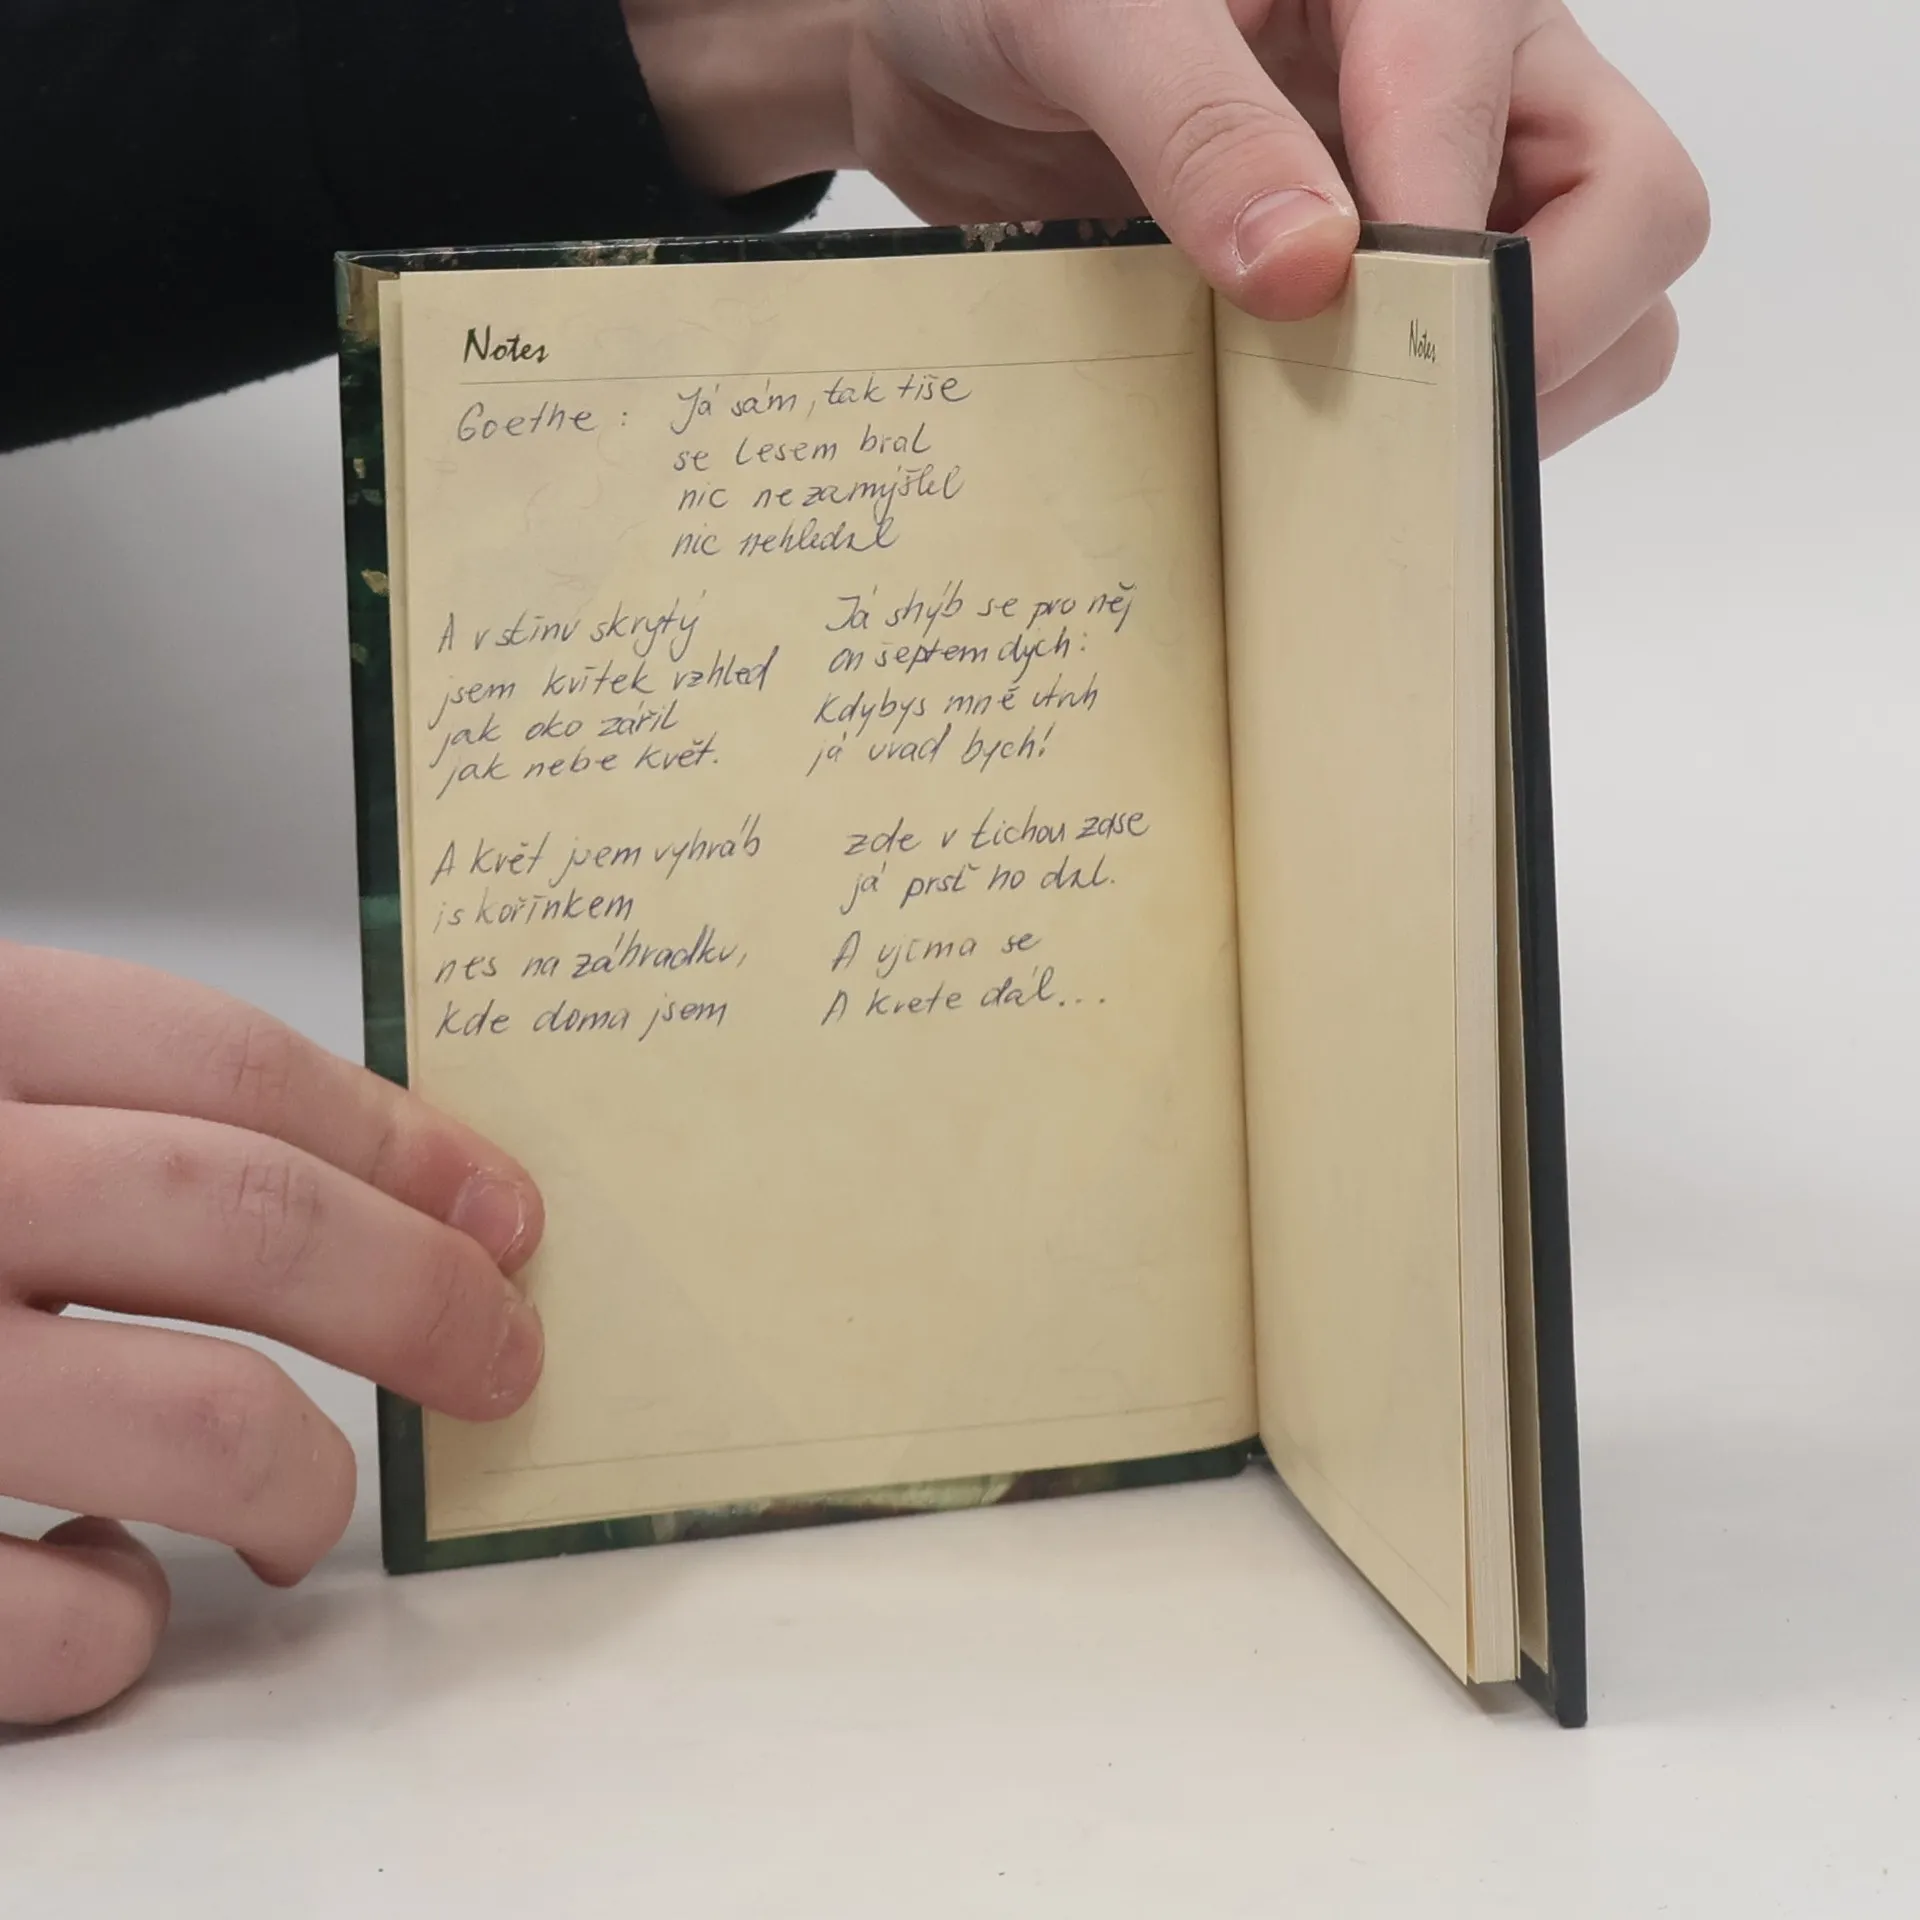 Notes
Goethe: Já sám, tak tiše
se lesem bral
nic nezamýšlel
nic nehledal
A v stínu skrytý
jsem kvítek vzhled
jak oko zářil
jak nebe květ.
Já shýb se pro něj
on šeptem dých:
Kdybys mně utrh
já uvad bych!
A květ jsem vyhráb
i s kořínkem
nes na záhradku,
kde doma jsem
zde v tichou zase
já prsť ho dal.
A ujíma se
A kvete dál...
Notes